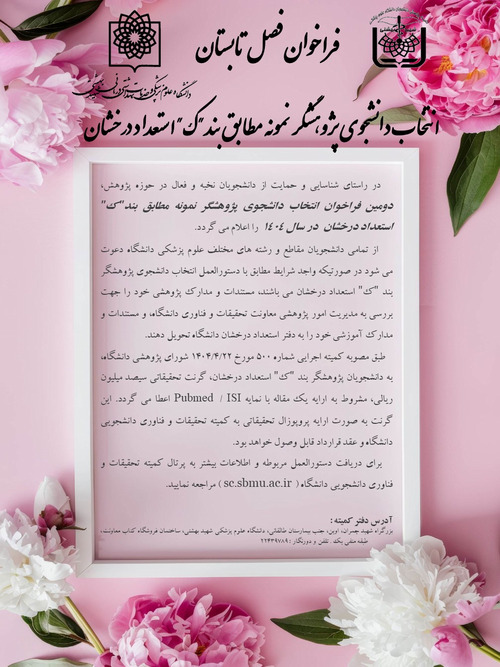 فراخوان فصل تابستان
انتخاب دانشجوی پژوهشگر نمونه مطابق بند "ک" استعداد درخشان
در راستای شناسایی و حمایت از دانشجویان نخبه و فعال در حوزه پژوهش،
دومین فراخوان انتخاب دانشجوی پژوهشگر نمونه مطابق بند"ک"
استعداد درخشان در سال ۱۴۰۴ را اعلام می گردد.
از تمامی دانشجویان مقاطع و رشته های مختلف علوم پزشکی دانشگاه دعوت
می شود در صورتیکه واجد شرایط مطابق با دستورالعمل انتخاب دانشجوی پژوهشگر
بند "ک" استعداد درخشان می باشند، مستندات و مدارک پژوهشی خود را جهت
بررسی به مدیریت امور پژوهشی معاونت تحقیقات و فناوری دانشگاه، و مستندات و
مدارک آموزشی خود را به دفتر استعداد درخشان دانشگاه تحویل دهند.
طبق مصوبه کمیته اجرایی شماره ۵۰۰ مورخ ۱۴۰۴/۴/۲۲ شورای پژوهشی دانشگاه،
به دانشجویان پژوهشگر بند "ک" استعداد درخشان، گرنت تحقیقاتی سیصد میلیون
ریالی، مشروط به ارایه یک مقاله با نمایه Pubmed / ISI اعطا می گردد. این
گرنت به صورت ارایه پروپوزال تحقیقاتی به کمیته تحقیقات و فناوری دانشجویی
دانشگاه و عقد قرارداد قابل وصول خواهد بود.
برای دریافت دستورالعمل مربوطه و اطلاعات بیشتر به پرتال کمیته تحقیقات و
فناوری دانشجویی دانشگاه ( sc.sbmu.ac.ir ) مراجعه نمایید.
آدرس دفتر کمیته:
بزرگراه شهید چمران، اوین، جنب بیمارستان طالقانی، دانشگاه علوم پزشکی شهید بهشتی، ساختمان فروشگاه کتاب معاونت،
طبقه منفی یک. تلفن و دورنگار: ۲۲۴۳۹۷۸۹